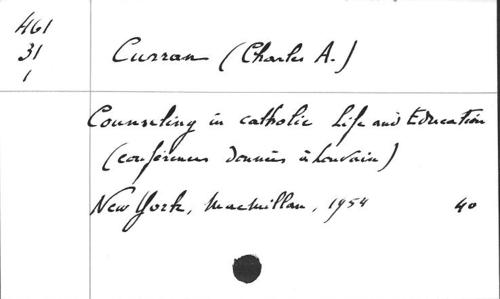 461
31
1
Curran (Charles A.)
Counseling in catholic Life and Education
(conférences données à Louvain)
New York, Macmillan, 1954 40